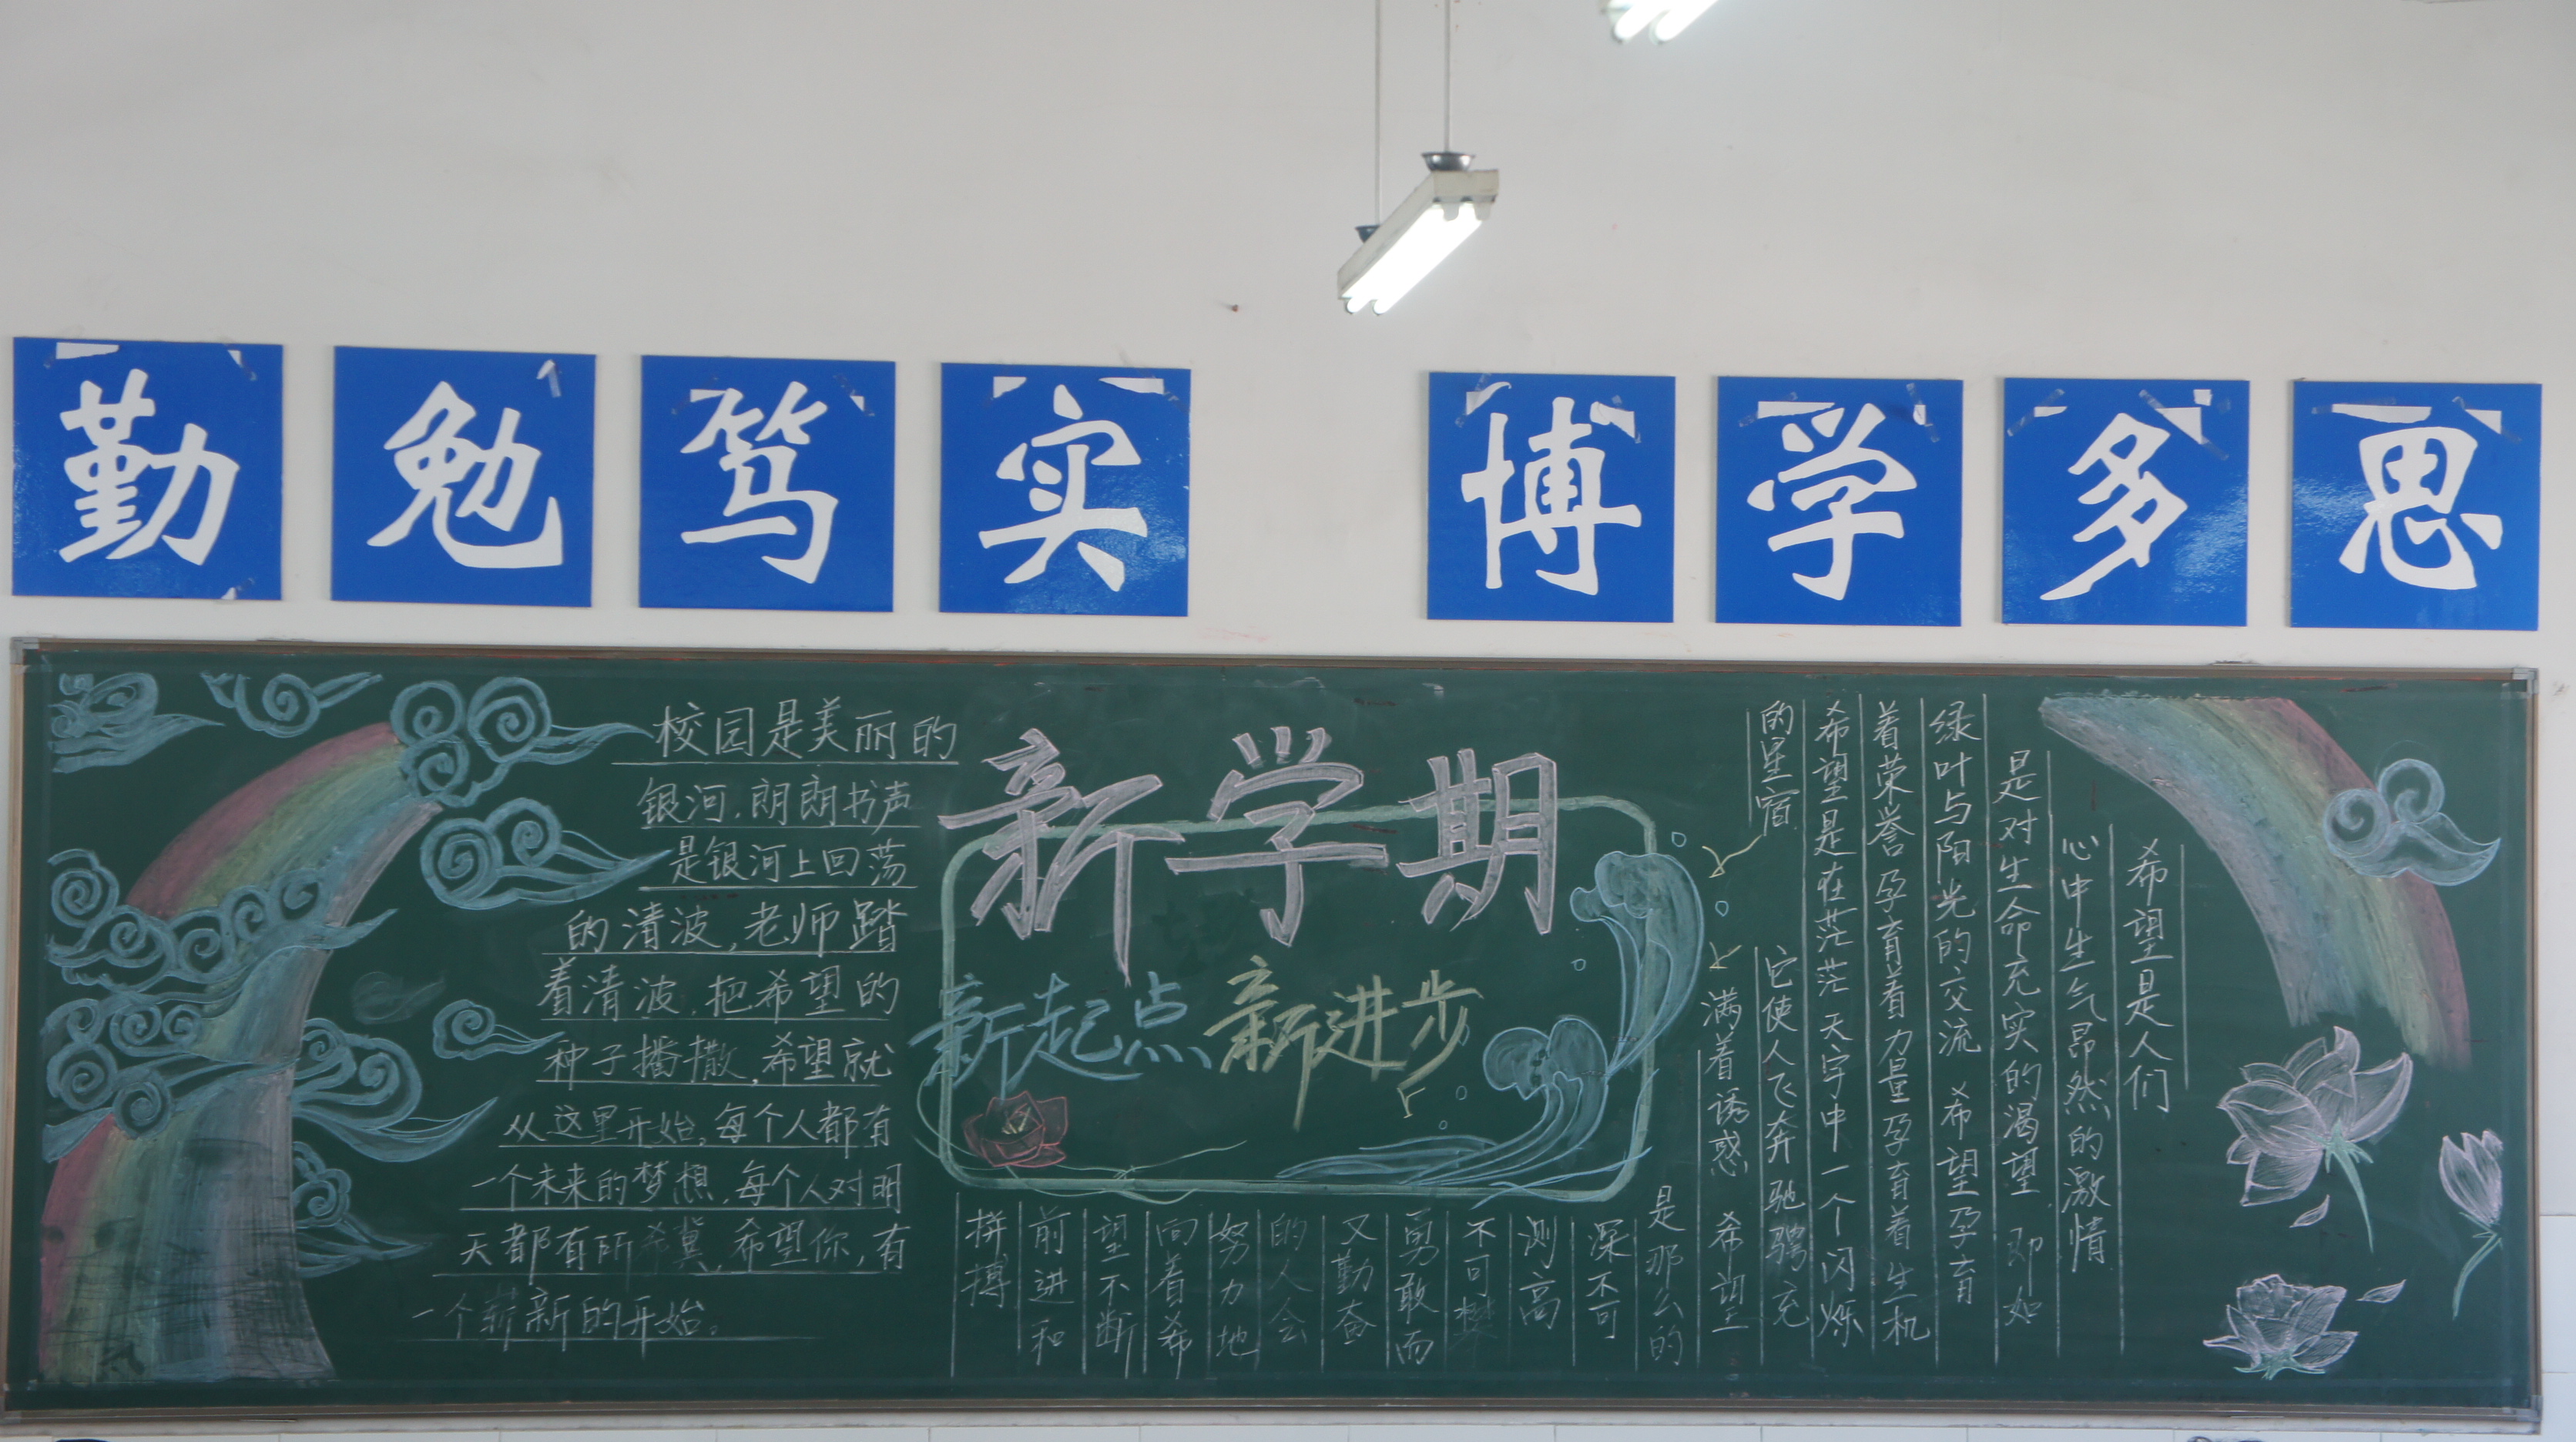 勤勉笃实 博学多思
校园是美丽的
银河,朗朗书声
是银河上回荡
的清波,老师踏
着清波,把希望的
种子播撒,希望就
从这里开始,每个人都有
一个未来的梦想,每个人对明
天都有所希冀,希望你,有
一个崭新的开始。
新学期
新起点 新进步
希望是人们
心中生气昂然的激情
是对生命充实的渴望 即如
绿叶与阳光的交流 希望孕育
着荣誉孕育着力量孕育着生机
希望是在茫茫天宇中一个闪烁
的星宿 它使人飞奔驰骋充
满着诱惑 希望
是那么的
深不可
测高
不可攀
勇敢而
又勤奋
的人会
努力地
向着希
望不断
前进和
拼搏